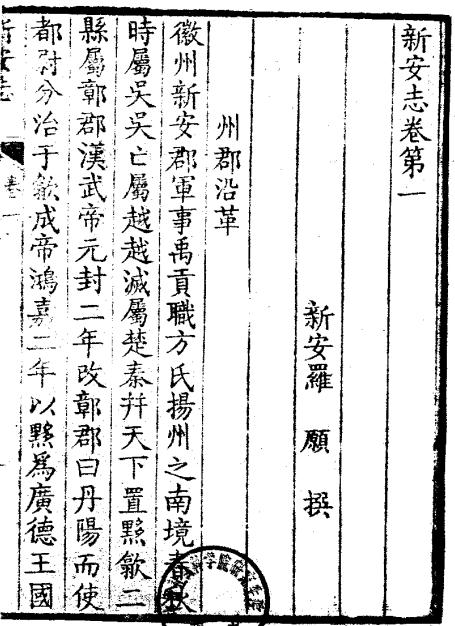 新安志卷第一
新安羅願撰
州郡沿革
徽州新安郡軍事禹貢職方氏揚州之南境春秋
時屬吳吳亡屬越越滅屬楚秦幷天下置黟歙二
縣屬鄣郡漢武帝元封二年改鄣郡曰丹陽而使
都尉分治于歙成帝鴻嘉二年以黟爲廣德王國
新安志
卷一